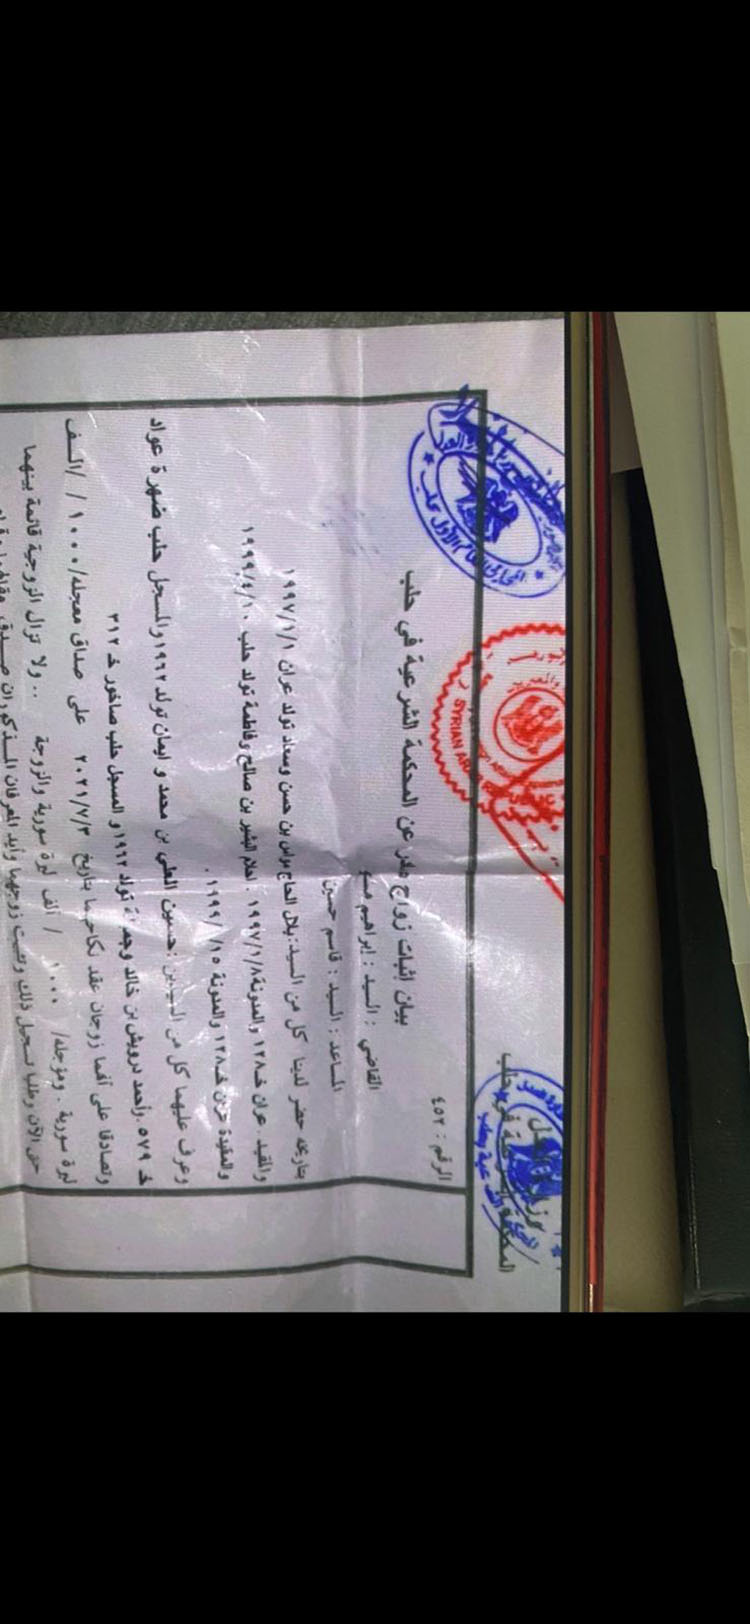 وزارة العدل
المحكمة الشرعية في حلب
الرقم : ٤٥٢
بيان إثبات زواج صادر عن المحكمة الشرعية في حلب
القاضي : السيد : إبراهيم
المساعد : السيد : قاسم حسين
بتاريخه حضر لدينا كل من السيد: بلال الحاج موسى بن حسن وسعاد تولد عران ١٩٩٧/١/١
والمقيد عران خـ١٢٨ والمدونة ١٩٩٧/١/٨ . احلام البشير بن صالح وفاطمة تولد حلب ١٩٩٩/٤/١٠
والمقيدة حزن خـ١٢٨ والمدونة ١٥/ /١٩٩٩ .
وعرف عليهما كل من السيدين : حسين العلي بن محمد و ايمان تولد ١٩٦٢ والمسجل حلب ضهرة عواد
خـ ٥٧٩ . وأحمد درويش بن خالد تولد ١٩٦٢ و المسجل حلب صاخور خـ ٣١٢
وتصادقا على أنهما زوجان عقد نكاحهما بتاريخ ٢٠٢١/٧/٣ على صداق معجله/١٠٠٠ / /ألـف
ليرة سورية . ومؤجله/ ١٠٠٠ / ألف ليرة سورية والزوجة .. ولا تزال الزوجية قائمة بينهما
حتى الآن وطلبا تسجيل ذلك وتثبيت زوجهما وأيد المعرفان المـذكوران صـدق
SYRIAN ARAB